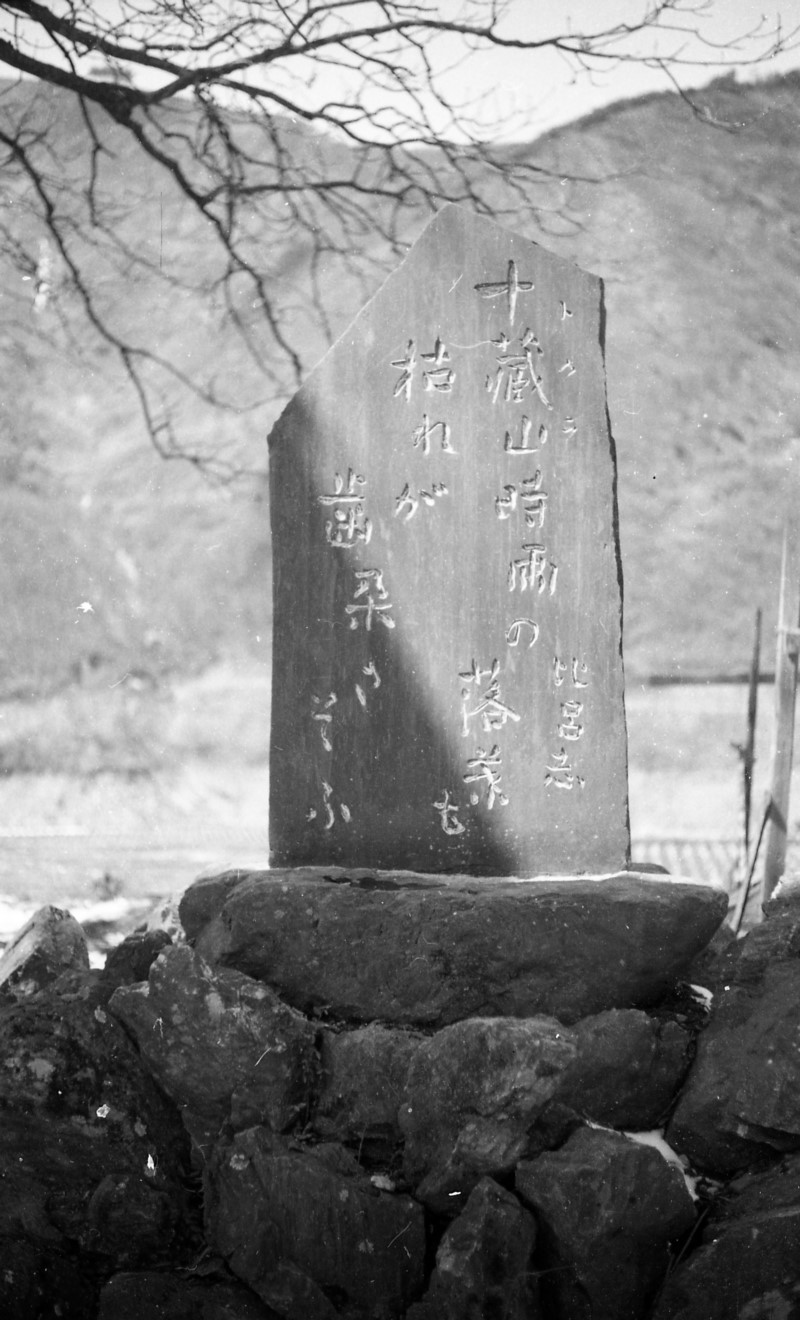 十蔵山時雨の
トクラ
落葉も
枯れが
歯朶さ
そふ
比呂志